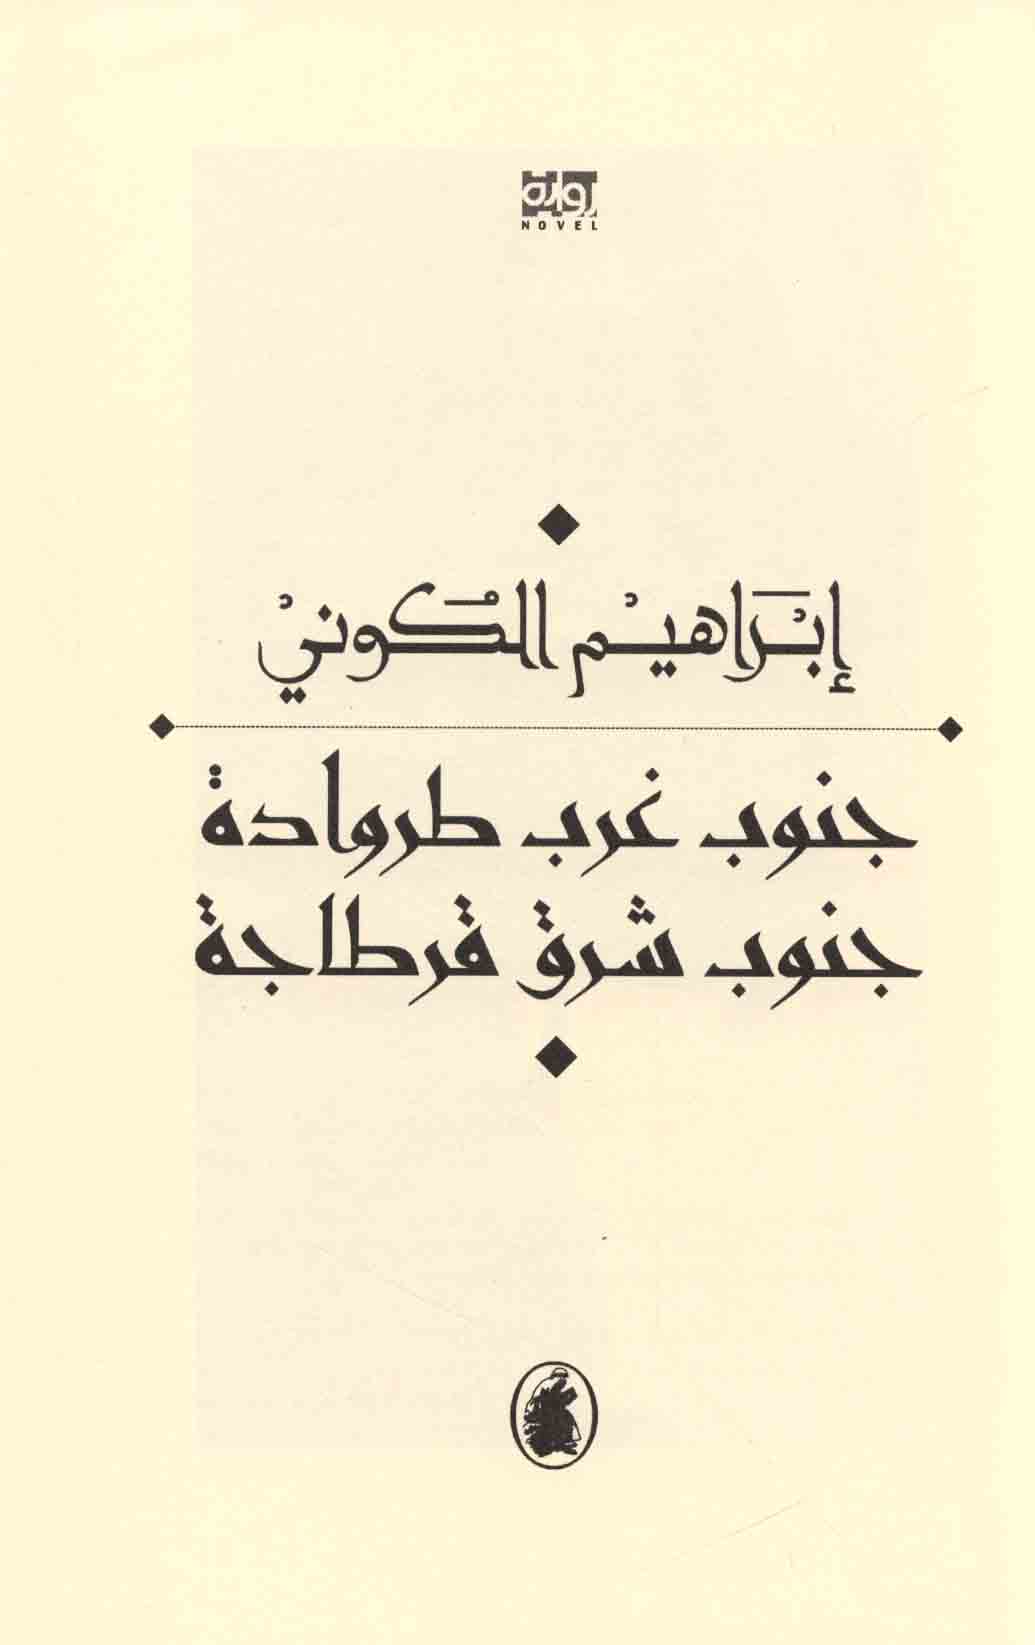 رواية
NOVEL
إبْرَاهيْم الكُونيْ
جنوب غرب طروادة
جنوب شرق قرطاجة